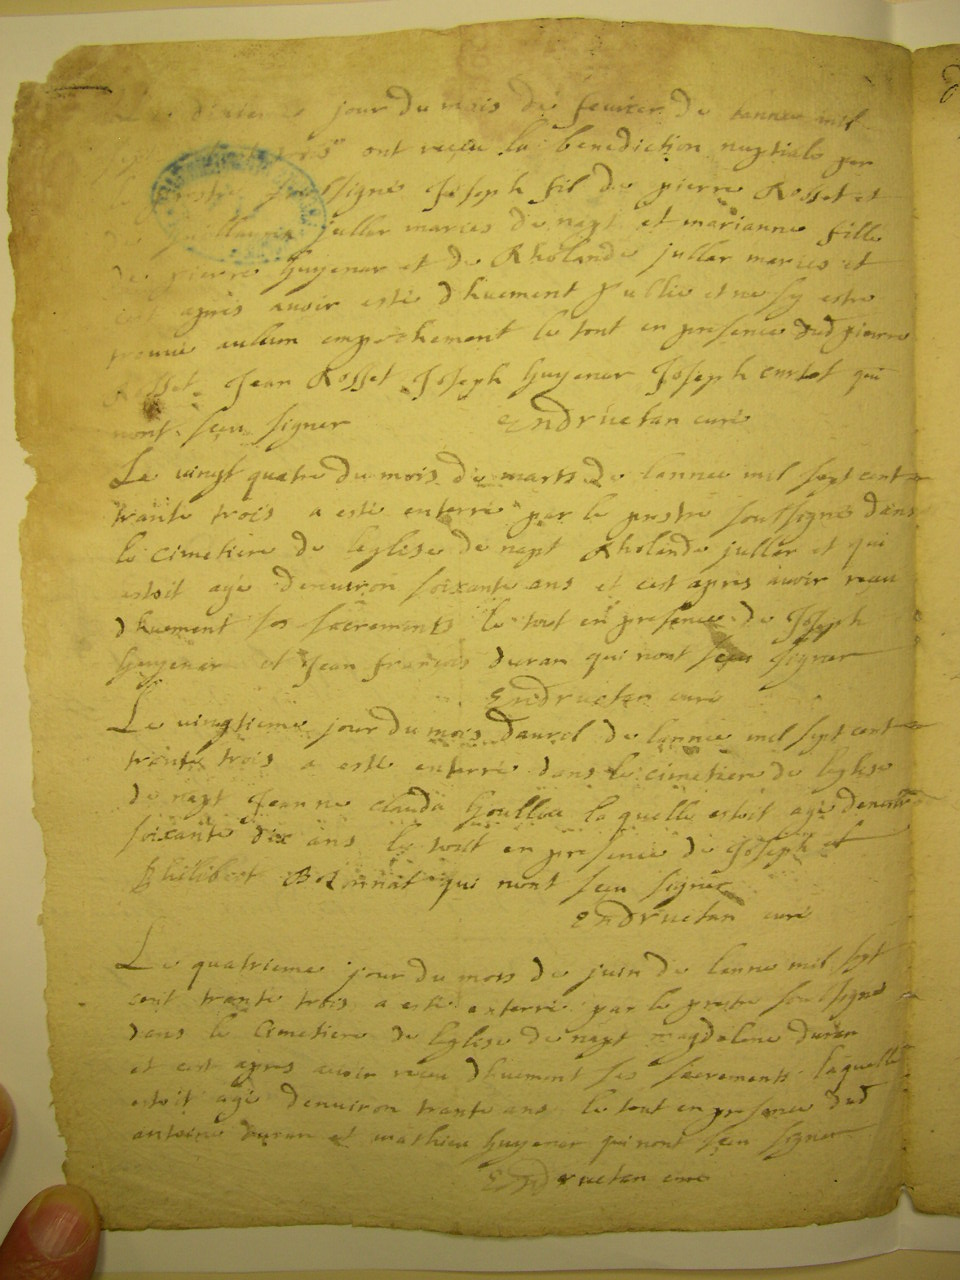 Le dixieme jour du mois de feurier de lannee mil
sept trois ont receu la benediction nuptiale par
le prestre soussigné Joseph fil de pierre Rosset et
de guillauma juller maries de napt et marianne fille
de pierre guyenar et de Rholande juller maries et
cest apres auoir esté dhuement publié et ne sy estre
trouué aulcun empechement le tout en presence dud pierre
Rosset Jean Rosset Joseph guyenar Joseph curtet qui
nont sceu signer Endructan curé
Le vingt quatre du mois de marts de lannee mil sept cent
trante trois a esté enterré par le prestre soussigné dans
le cimetiere de leglise de napt Rholande juller et qui
estoit agé denuiron soixante ans et cest apres auoir receu
dhuement ses sacrements le tout en presence de Joseph
guyenar et Jean françois duran qui nont sceu signer
Endructan curé
Le vingtieme jour du mois dauril de lannee mil sept cent
trante trois a esté enterré dans le cimetiere de leglise
de napt Jeanne clauda la quelle estoit agé denuiron
soixante dix ans le tout en presence de Joseph et
philibert qui nont sceu signer
Endructan curé
Le quatrieme jour du mois de juin de lanne mil sept
cent trante trois a esté enterré par le prestre soussigné
dans le Cimetiere de leglise de napt magdelene duran
et cest apres auoir receu dhuement ses sacrements laquelle
estoit agé denuiron trante ans le tout en presence dud
antoine duran et mathieu guyenar qui nont sceu signer
Endructan curé